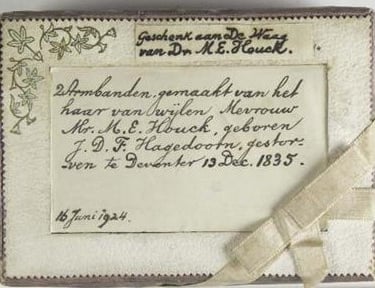 Geschenk aan De Waag
van Dr. M. E. Houck.
2 Armbanden, gemaakt van het
haar van wijlen Mevrouw
Mr. M. E. Houck, geboren
J. D. F. Hagedoorn, gestor-
ven te Deventer 13 Dec. 1835.
16 Juni 1924.